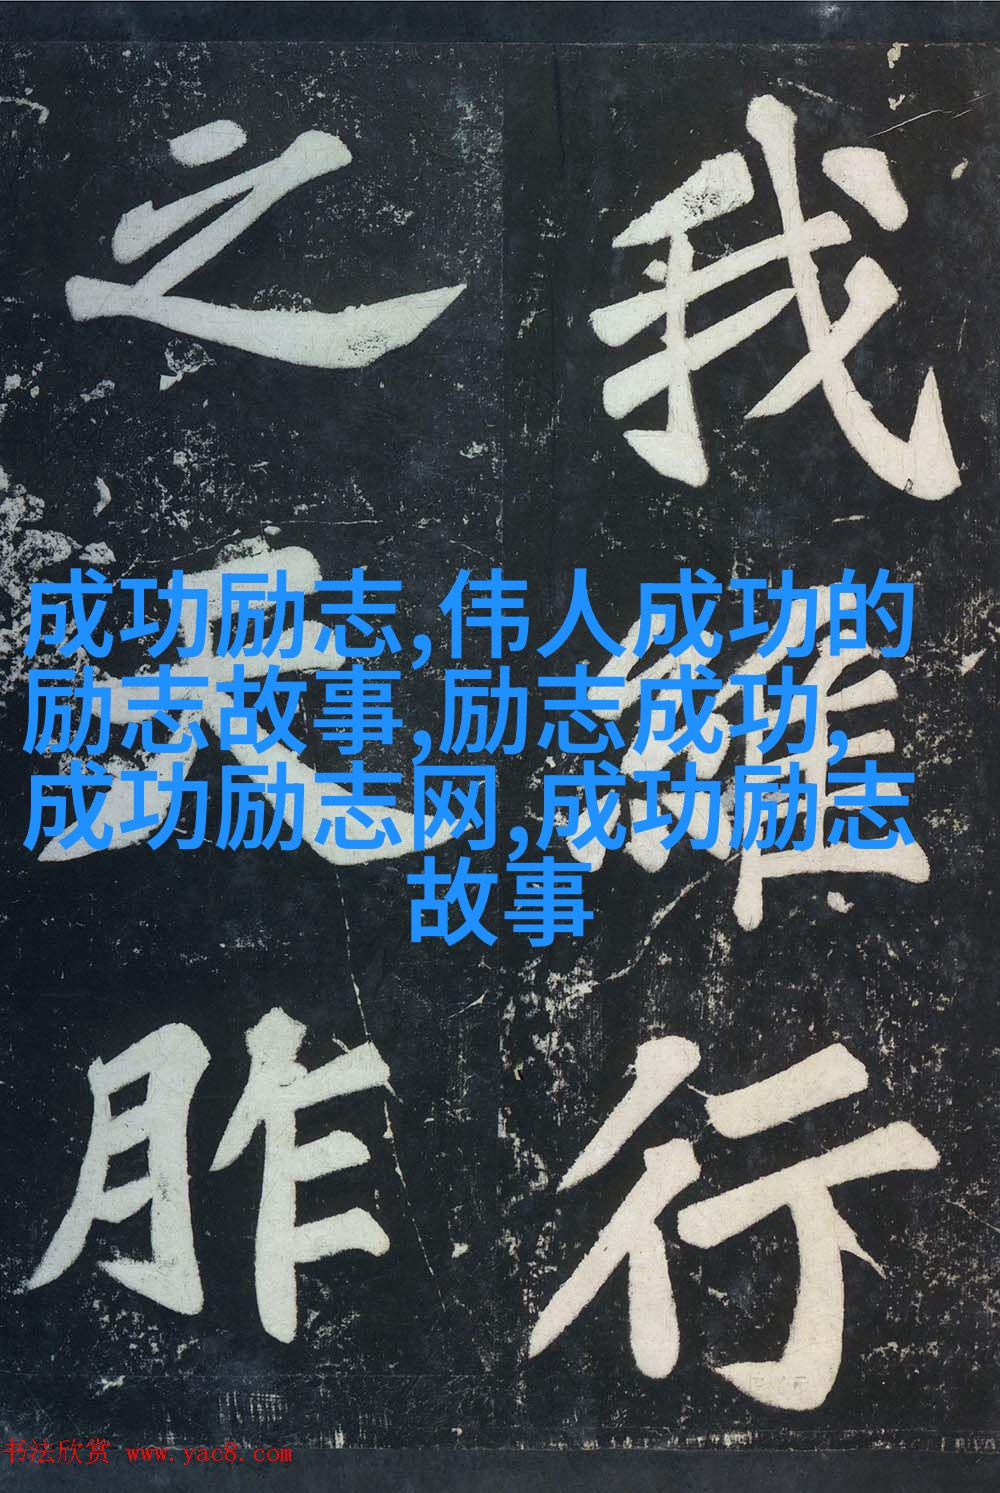 我維行
之天胙
成功励志,伟人成功的
励志故事,励志成功,
成功励志网,成功励志
故事
书法欣赏 www.yac8.com